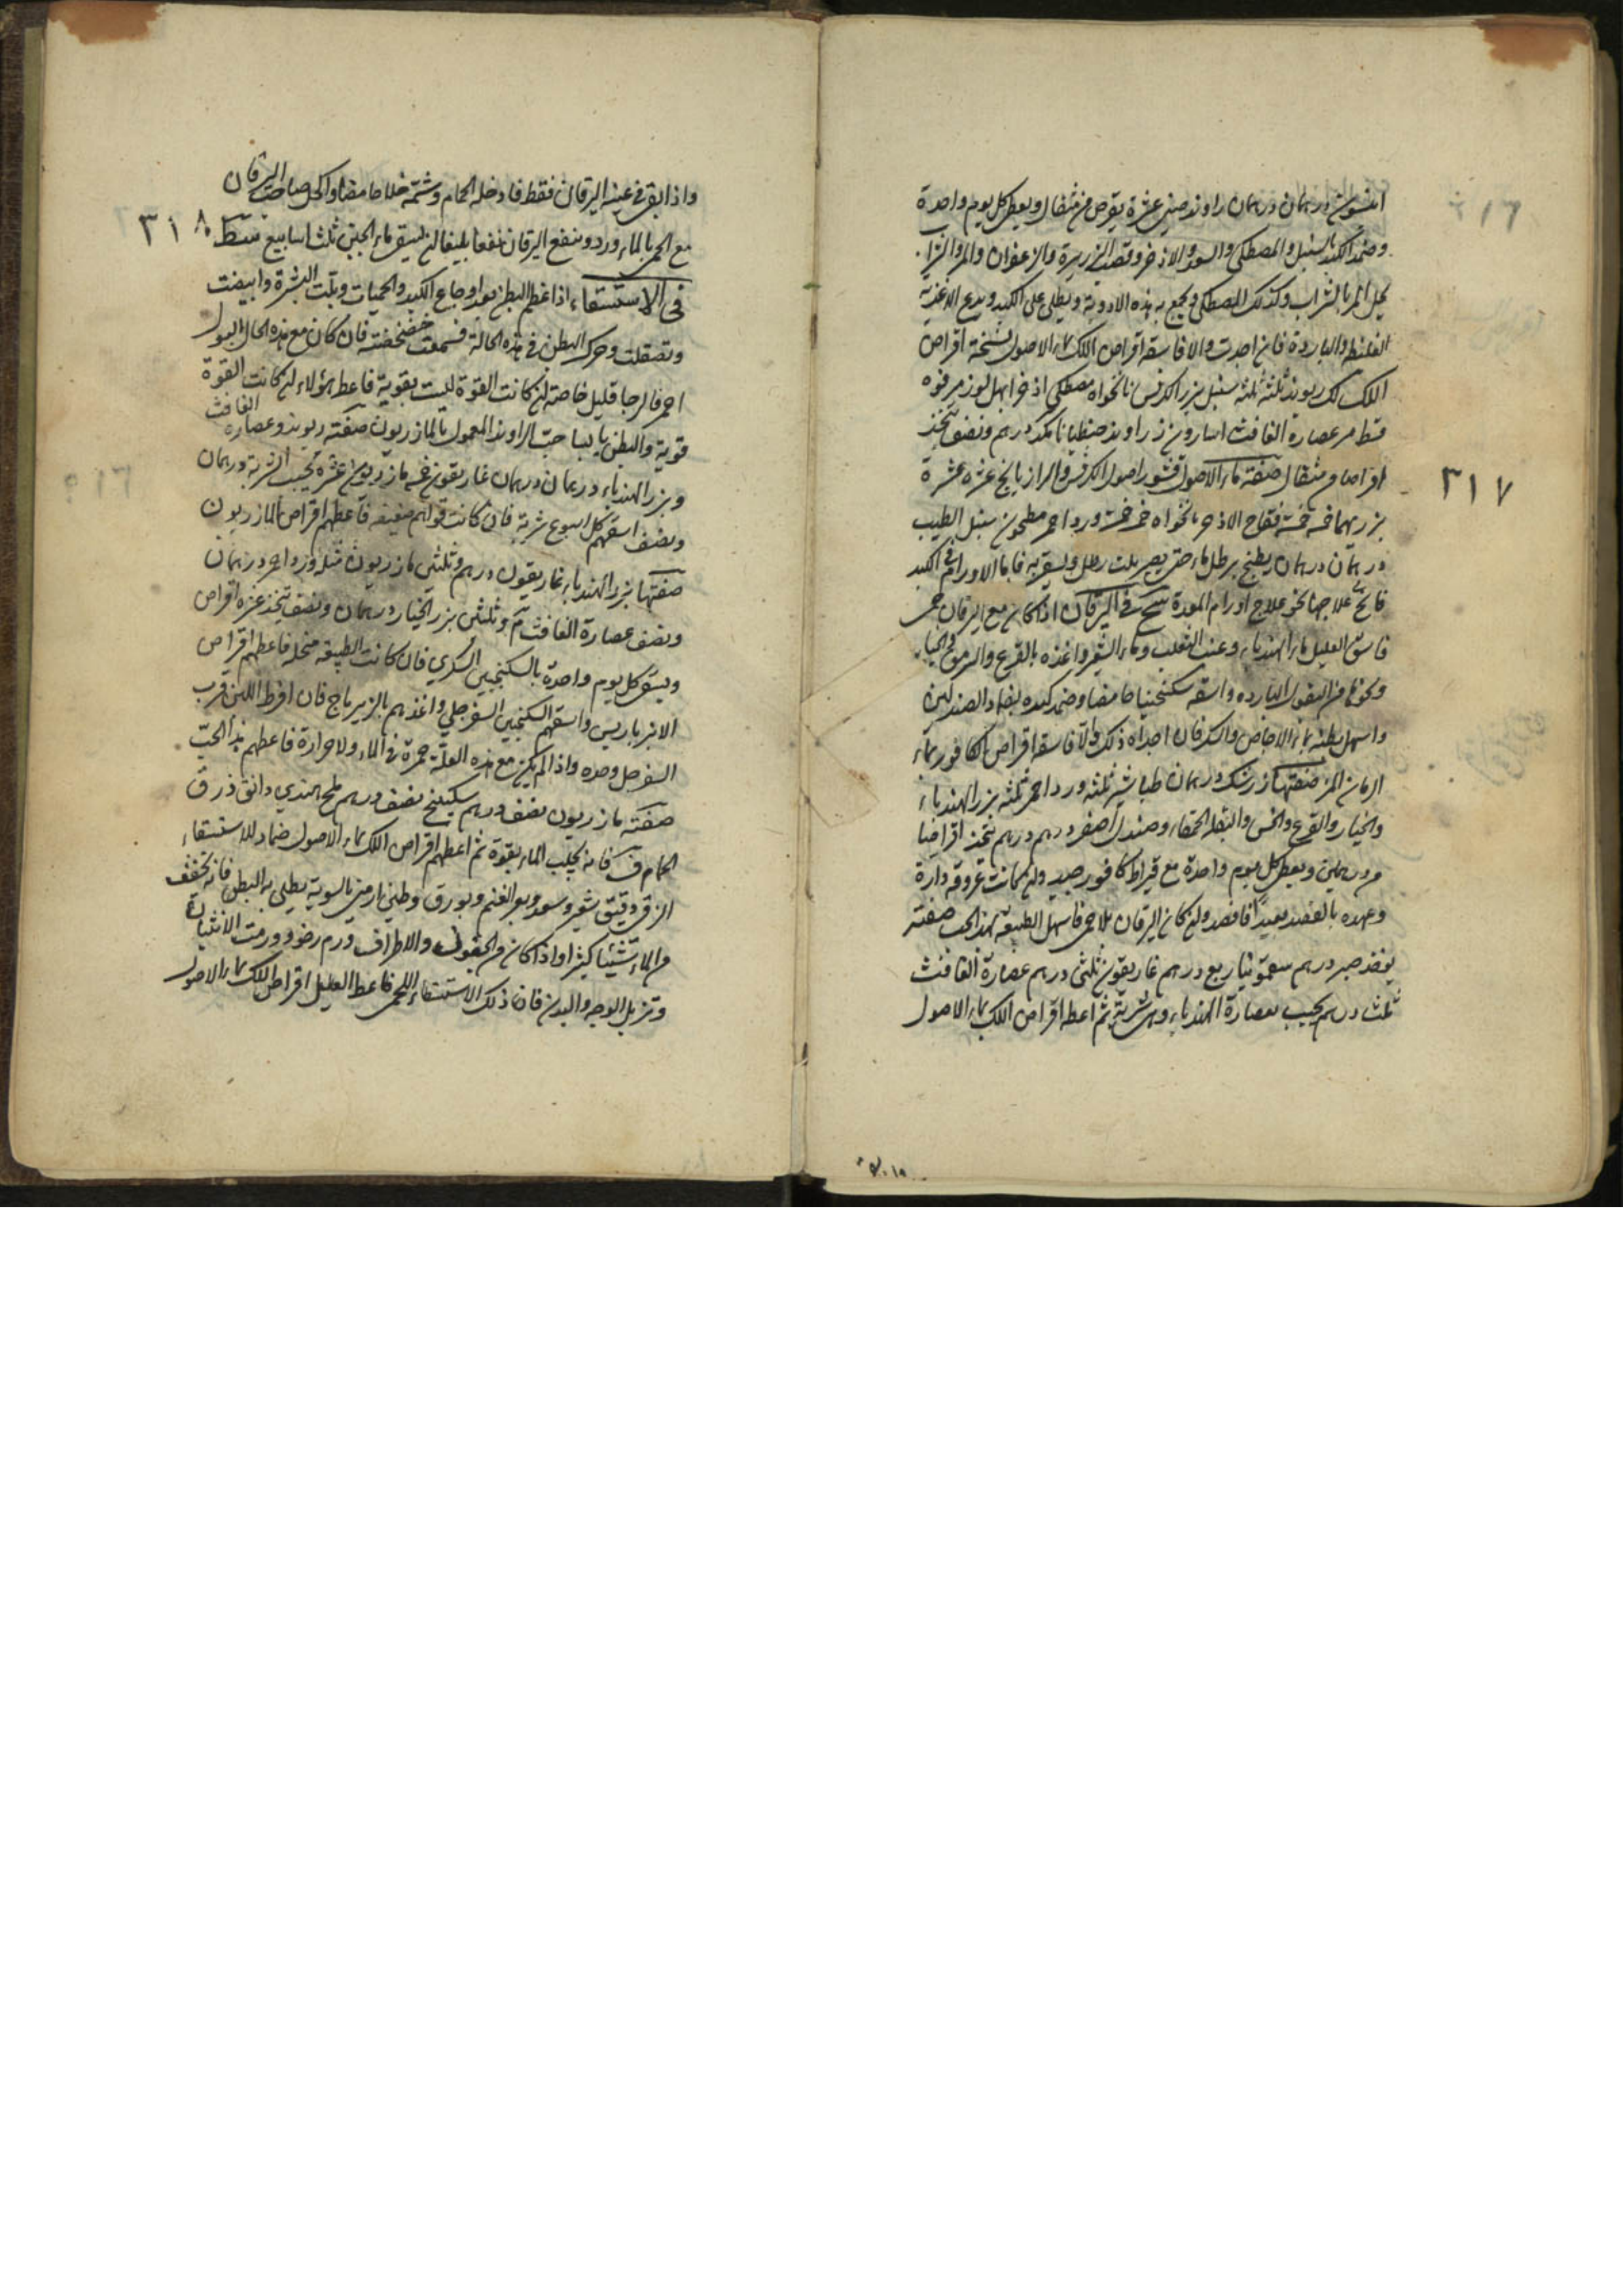 افسنتين درهمان درهمان راوند صيني عشرة يقرص من مثقال ويعطى كل يوم واحدة
وضمد الكبد بالسنبل والمصطكى والسعد والاذخر وقصب الذريرة والزعفران والمر والنزا
يحل المر بالشراب وكذلك المصطكى ويجمع به هذه الادوية ويطلى على الكبد ويدع الاغذية
الغليظة والباردة فان اجدت والا فاسقه اقراص اللك بماء الاصول نسخة اقراص
اللك لك ريوند ثلثة ثلثة سنبل بزر الكرفس نانخواه مصطكى اذخر ابهل لوز مر فوه
قسط مر عصارة الغافت اسارون زراوند جنطيانا مكد درهم ونصف يتخذ
اقراصا من مثقال صفة ماء الاصول قشور اصول الكرفس والرازيانج عشره عشرة
بزرهما خمسة خمسة فقاح الاذخر نانخواه خمسة خمسة ورد احمر مطحون سنبل الطيب
درهمان درهمان يطبخ برطل ماء حتى يصير ثلث رطل ويسقى به فاما الاورام في الكبد
فانج علاجها نحو علاج اورام المعدة في اليرقان اذا كان مع اليرقان حمى
فاسق العليل ماء الهندباء وعنب الثعلب وماء الشعير واغذه بالقرع والسرمق والخيار
ونحوها من البقول الباردة واسقه سكنجبينا حامضا وضمد كبده بضماد الصندلين
واسهل بطنه بماء الاجاص والسكر فان اجداه ذلك والا فاسقه اقراص الكافور بماء
الرمان المز صفتها زرشك درهمان طباشير ثلثة ورد احمر ثلثة بزر الهندباء
والخيار والقرع والخس والبقلة الحمقاء وصندل اصفر درهم درهم يتخذ اقراصا
من درهمين ويعطى كل يوم واحدة مع قيراط كافور جيد وان كانت عروقه دارة
وعهده بالفصد بعيدا فافصد وان كان اليرقان بلا حمى فاسهل الطبيعة بهذا الحب صفته
يوخذ صبر درهم سقمونيا ربع درهم غاريقون ثلثى درهم عصارة الغافت
ثلث درهم يحبب بعصارة الهندباء وهى شربة ثم اعطه اقراص اللك بماء الاصول
٣١٧
واذا بقى في عينه اليرقان فقط فادخله الحمام وشمه خلا حامضا واكحل صاحب اليرقان
مع الحمى بالماء ورد وينفع اليرقان نفعا بليغا ان يسقى ماء الجبن ثلث اسابيع
في الاستسقاء اذا عظم البطن بعد اوجاع الكبد والحميات وتلت البشرة وابيضت
وتصقلت وحرك البطن في هذه الحالة فسمعت خضخضته فان كان مع هذه الحال البول
احمر فالرجا قليل خاصة ان كانت القوة ليست بقوية فاعط هؤلاء ان كانت القوة
قوية والبطن يابسا حب الراوند المعمول بالمازريون صفته ريوند وعصارة الغافت
وبزر الهندباء درهمان درهمان غاريقون خمسة مازريون عشرة يحبب الشربة درهمان
ونصف اسقهم كل اسبوع شربة فان كانت قواهم ضعيفه فاعطهم اقراص المازريون
صفتها بزر الهندباء غاريقون درهم وثلثى مازريون مثله ورد احمر درهمان
ونصف عصارة الغافت وثلثى بزر الخيار درهمان ونصف يتخذ عشرة اقراص
ويسقى كل يوم واحدة بالسكنجبين السكري فان كانت الطبيعة منحله فاعطهم اقراص
الانبرباريس واسقهم السكنجبين السفرجلي واغذهم بالزيرباج فان افرط اللين قرب
السفرجل وحده واذا لم يكن مع هذه العلة حمرة في الماء ولا حرارة فاعطهم هذا الحب
صفته مازريون نصف درهم سكبينج نصف درهم ملح هندي دانق ذرق
الحمام فانه يجلب الماء بقوة ثم اعطهم اقراص اللك بماء الاصول ضماد للاستسقاء
الزقي دقيق شعير وسعد وبعر الغنم وبورق وطين ارمني بالسوية يطلى به البطن فانه يخفف
من الماء شيئا كثيرا واذا كان في الجفون والاطراف ورم رخو وورمت الانثيان
وتربل الوجه والبدن فان ذلك الاستسقاء اللحمى فاعط العليل اقراص اللك بماء الاصول
٣١٨